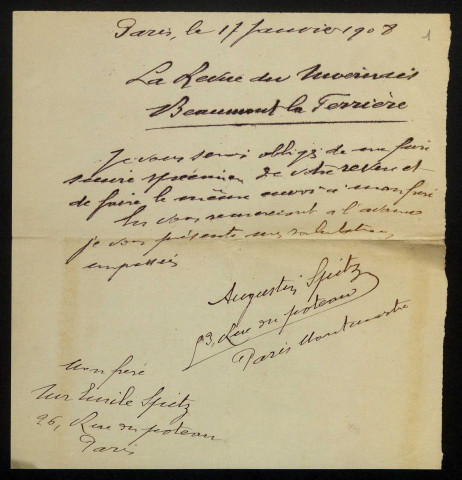 Paris, le 17 Janvier 1908
1
La Revue du Nivernais
Beaumont la Ferrière
Je vous serai obligé de me faire
suivre spécimen de votre revue et
de faire le même envoi a mon frère
En vous remerciant a l'avance
je vous présente mes salutations
empressées
Augustin Spitz
93, Rue du poteau
Paris Montmartre
Mon frère
Mr Emile Spitz
96, Rue du poteau
Paris